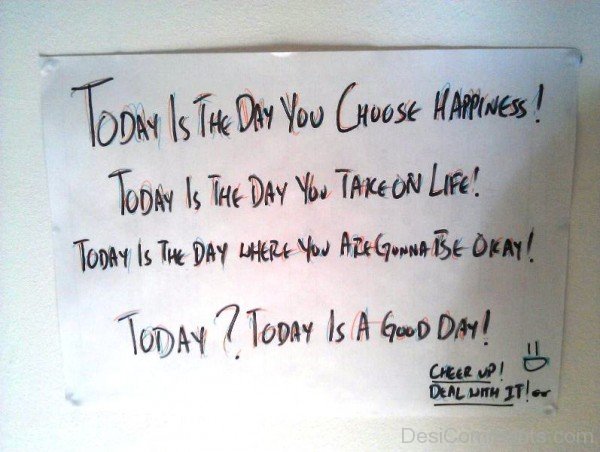 Today Is The Day You Choose Happiness!
Today Is The Day You Take On Life!
Today Is The Day where You Are Gonna Be Okay!
Today? Today Is A Good Day!
Cheer up!
Deal with It!
DesiComments.com